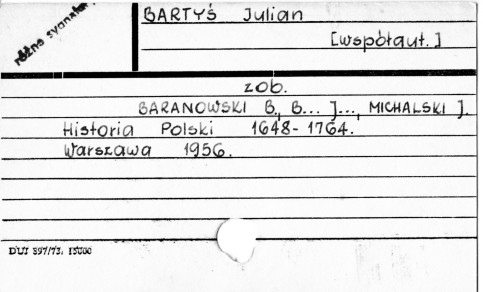 różne sygnat.
BARTYŚ Julian
[współaut.]
zob.
BARANOWSKI B., B... J..., MICHALSKI J.
Historia Polski 1648-1764.
Warszawa 1956.
DUJ 897/73. 15000